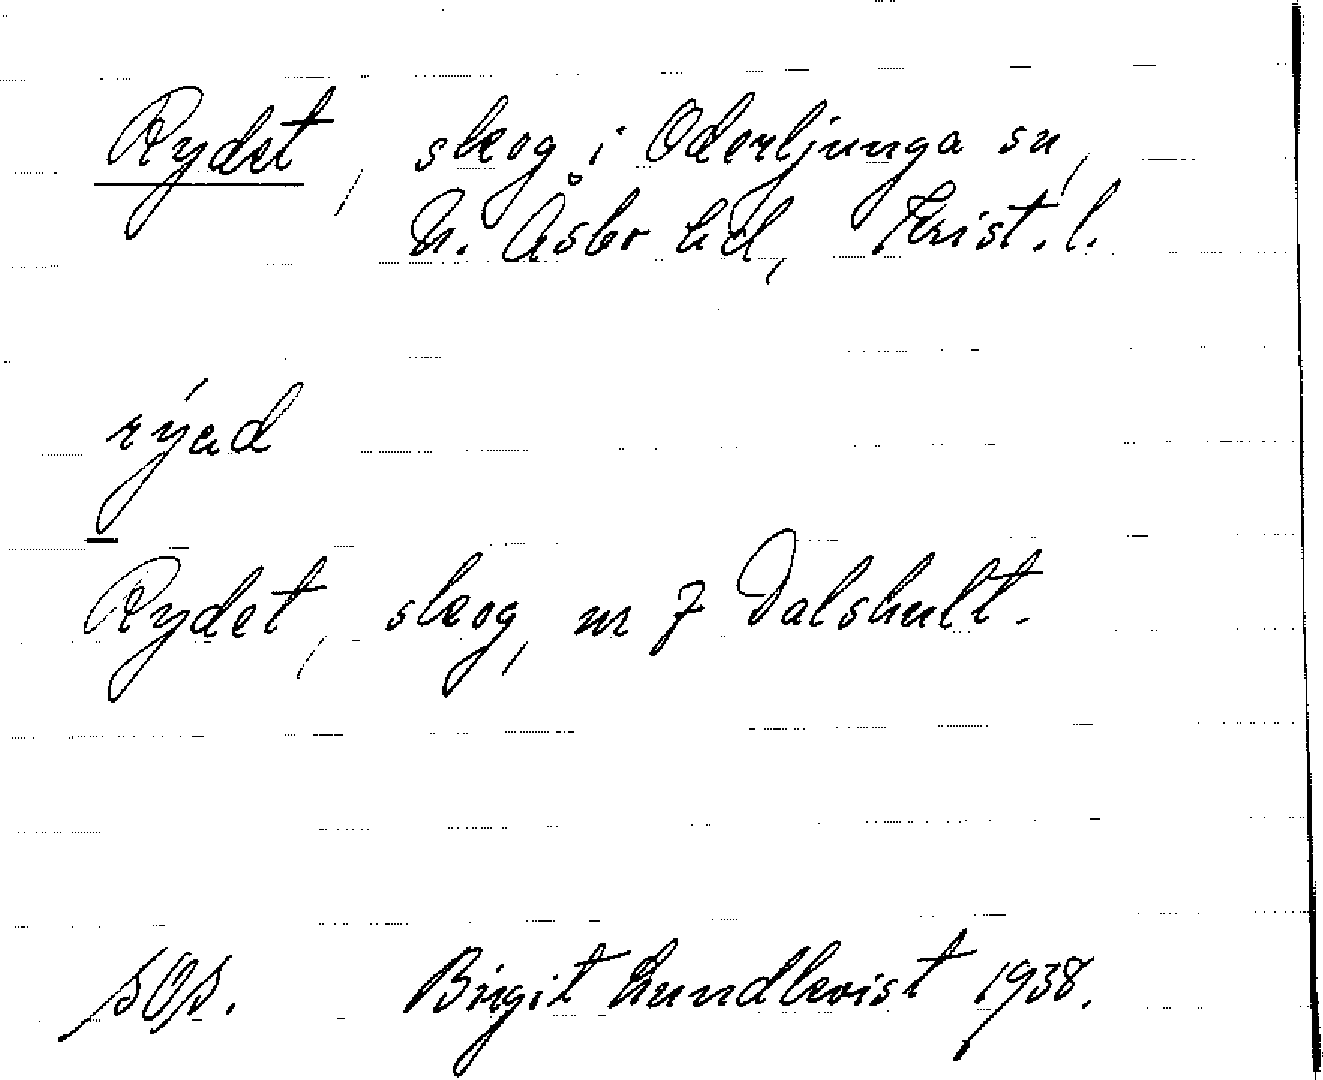 Rydet, skog i Oderljunga sn,
N. Åsbo hd, Krist. l.
rýad
Rydet, skog, nr 7 Dalshult.
sOs. Birgit Lundkvist 1938.